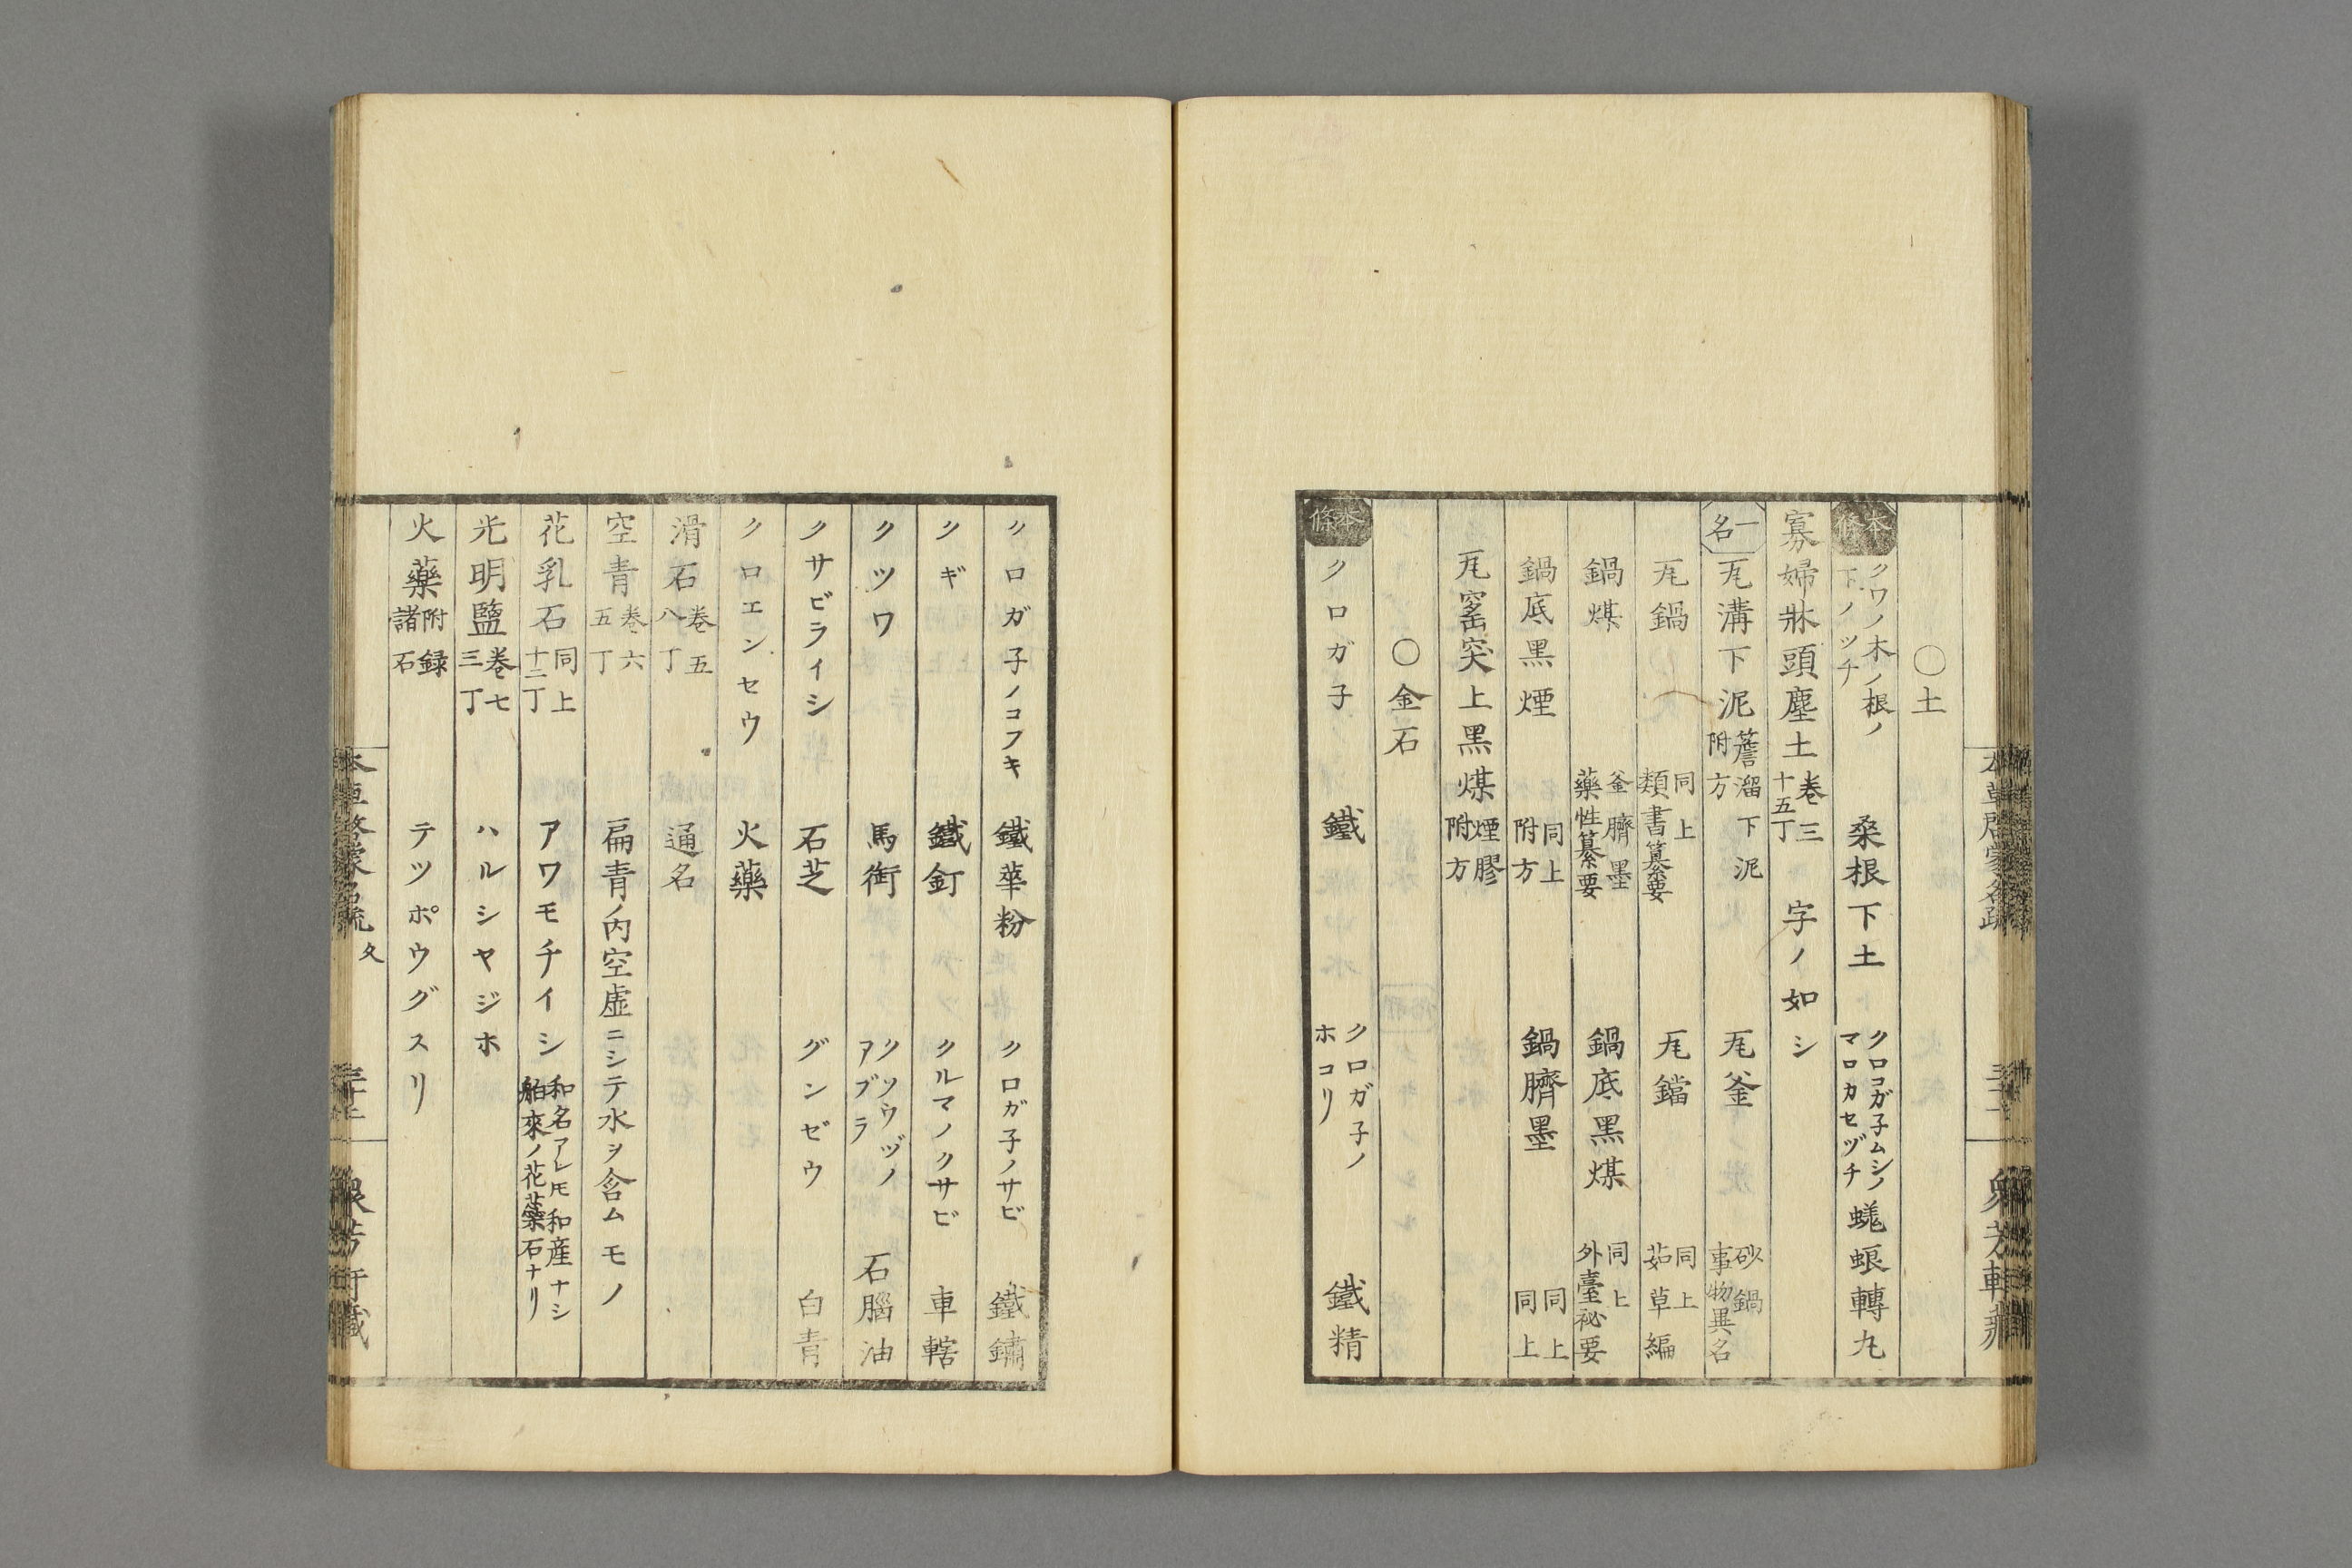 〇土
本條 クワノ木ノ根ノ下ノツチ 桑根下土 クロコガ子ムシノマロカセヅチ 蜣蜋轉丸
寡婦牀頭塵土 巻三十五丁 字ノ如シ
一名 瓦溝下泥 簷溜下泥附方 瓦釜 砂鍋事物異名
瓦鍋 同上類書纂要 瓦鐺 同上茹草編
鍋煤 釜臍墨藥性纂要 鍋底黒煤 同上外臺祕要
鍋底黒煙 同上附方 鍋臍墨 同上同上
瓦窰突上黒煤 煙膠附方
〇金石
本條 クロガ子 鐵 クロガ子ノホコリ 鐵精
クロガ子ノコフキ 鐵華粉 クロガ子ノサビ 鐵鏽
クギ 鐵釘 クルマノクサビ 車轄
クツワ 馬銜 クソウヅノアブラ 石腦油
クサビライシ 石芝 グンゼウ 白青
クロエンセウ 火藥
滑石 巻五八丁 通名
空青 巻六五丁 扁青ノ内空虚ニシテ水ヲ含ムモノ
花乳石 同上十二丁 アワモチイシ 和名アレ𪜈和産ナシ舶來ノ花蘂石ナリ
光明鹽 巻七三丁 ハルシヤジホ
火藥 附録諸石 テツポウグスリ